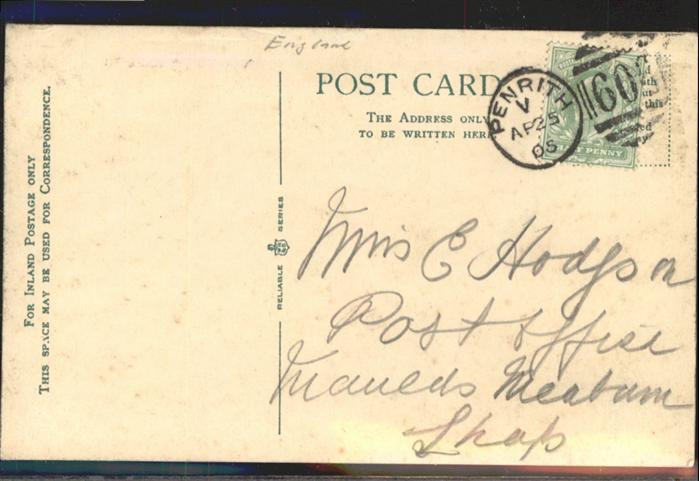 England
POST CARD
THE ADDRESS ONLY
TO BE WRITTEN HERE
PENRITH
V
AP 25
05
607
this
HALFPENNY
FOR INLAND POSTAGE ONLY
THIS SPACE MAY BE USED FOR CORRESPONDENCE.
RELIABLE SERIES
E Hodgson
Post Office
Maulds Meaburn
Shap